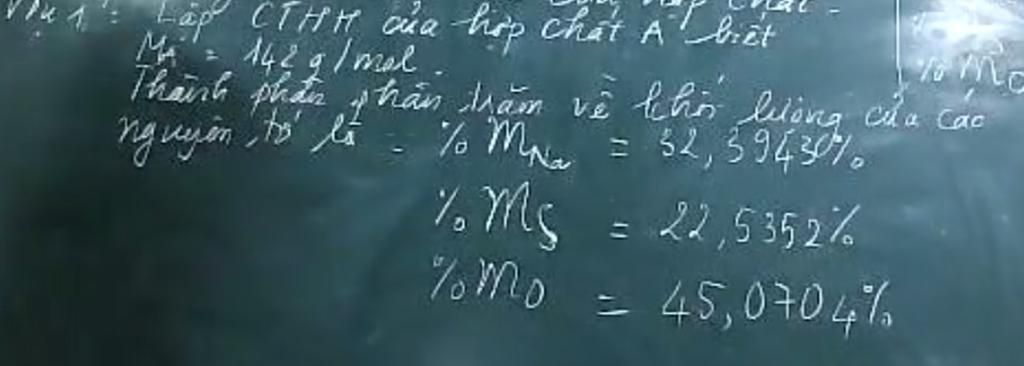 Vdụ 1: Lập CTHH của hợp chất A biết
MA = 142 g/mol.
Thành phần phần trăm về khối lượng của các
nguyên tố là: % mNa = 32,3943%
% mS = 22,5352%
% mO = 45,0704%
% mO